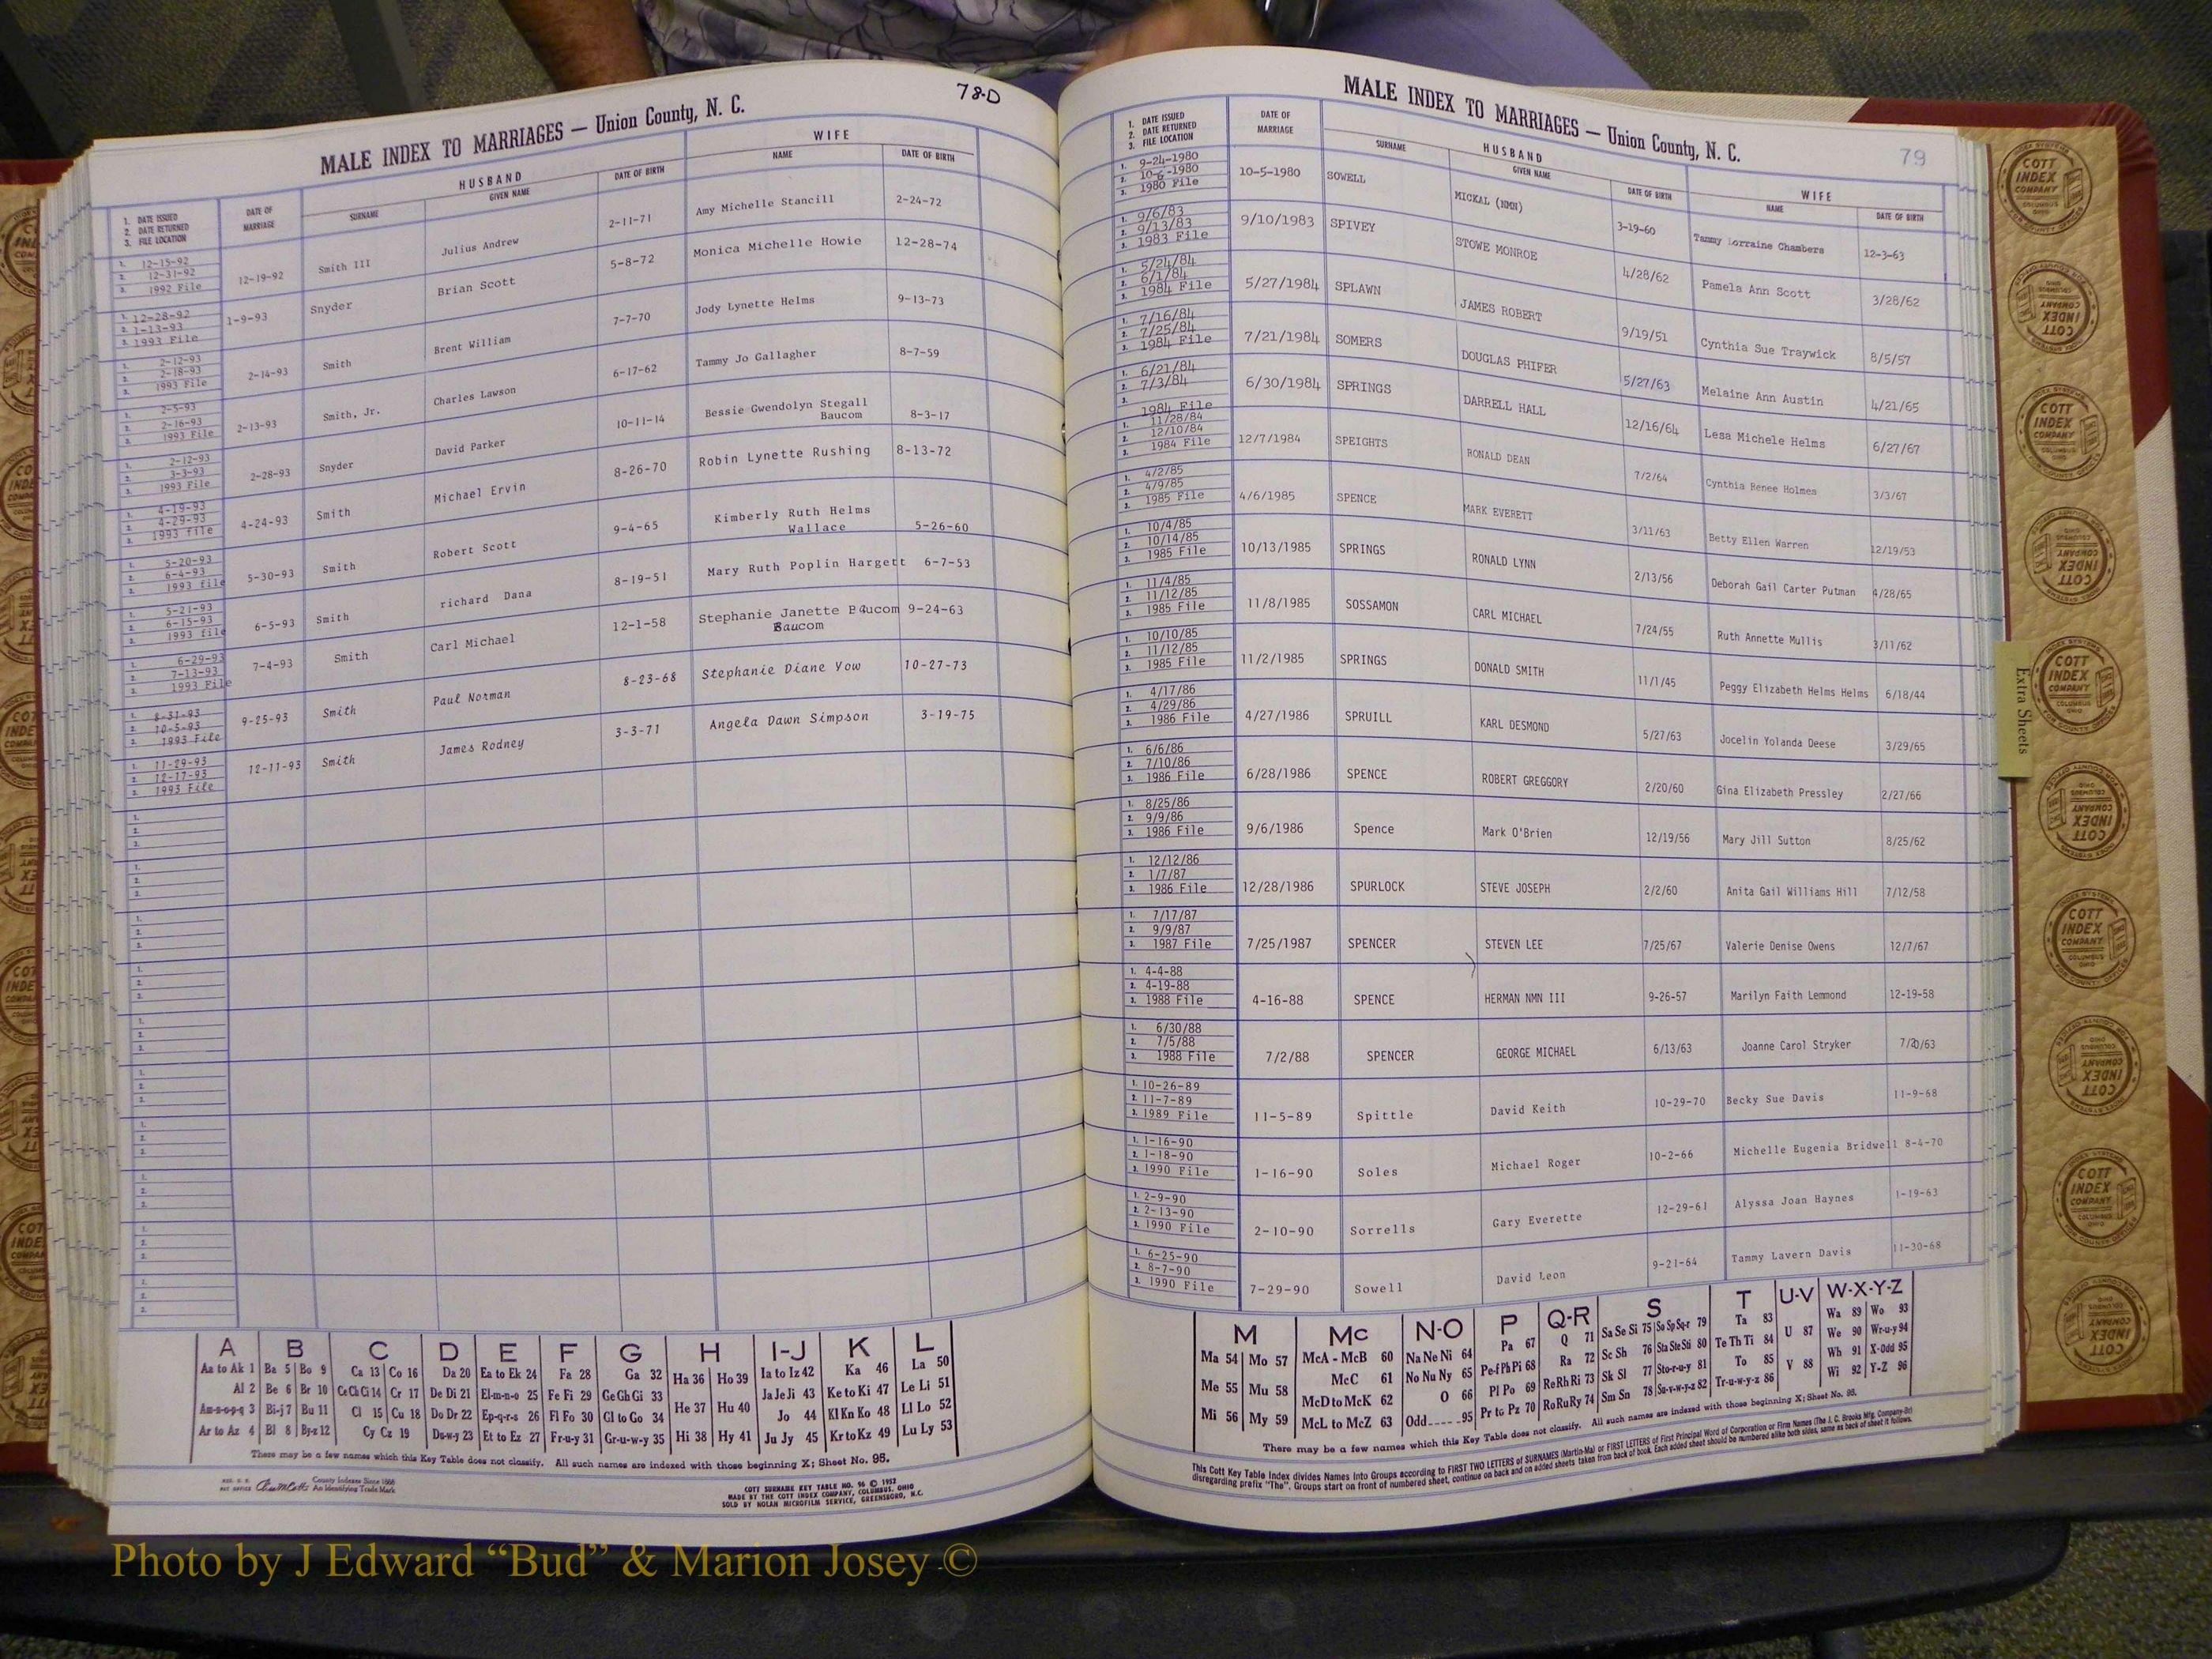 78-D
MALE INDEX TO MARRIAGES — Union County, N. C.
1. DATE ISSUED
2. DATE RETURNED
3. FILE LOCATION
DATE OF MARRIAGE
HUSBAND
SURNAME GIVEN NAME DATE OF BIRTH
WIFE
NAME DATE OF BIRTH
1. 12-15-92
2. 12-31-92
3. 1992 File
12-19-92 Smith III Julius Andrew 2-11-71 Amy Michelle Stancill 2-24-72
1. 12-28-92
2. 1-13-93
3. 1993 File
1-9-93 Snyder Brian Scott 5-8-72 Monica Michelle Howie 12-28-74
1. 2-12-93
2. 2-18-93
3. 1993 File
2-14-93 Smith Brent William 7-7-70 Jody Lynette Helms 9-13-73
1. 2-5-93
2. 2-16-93
3. 1993 File
2-13-93 Smith, Jr. Charles Lawson 6-17-62 Tammy Jo Gallagher 8-7-59
1. 2-12-93
2. 3-3-93
3. 1993 File
2-28-93 Snyder David Parker 10-11-14 Bessie Gwendolyn Stegall
Baucom 8-3-17
1. 4-19-93
2. 4-29-93
3. 1993 file
4-24-93 Smith Michael Ervin 8-26-70 Robin Lynette Rushing 8-13-72
1. 5-20-93
2. 6-4-93
3. 1993 file
5-30-93 Smith Robert Scott 9-4-65 Kimberly Ruth Helms
Wallace 5-26-60
1. 5-21-93
2. 6-15-93
3. 1993 file
6-5-93 Smith richard Dana 8-19-51 Mary Ruth Poplin Hargett 6-7-53
1. 6-29-93
2. 7-13-93
3. 1993 File
7-4-93 Smith Carl Michael 12-1-58 Stephanie Janette Baucom 9-24-63
Baucom
1. 8-31-93
2. 10-5-93
3. 1993 File
9-25-93 Smith Paul Norman 8-23-68 Stephanie Diane Yow 10-27-73
1. 11-29-93
2. 12-17-93
3. 1993 File
12-11-93 Smith James Rodney 3-3-71 Angela Dawn Simpson 3-19-75
A B C D E F G H I-J K L
Aa to Ak 1 Ba 5 Bo 9 Ca 13 Co 16 Da 20 Ea to Ek 24 Fa 28 Ga 32 Ha 36 Ho 39 Ia to Iz 42 Ka 46 La 50
Al 2 Be 6 Br 10 Ce Ch Ci 14 Cr 17 De Di 21 El-m-n-o 25 Fe Fi 29 Ge Gh Gi 33 He 37 Hu 40 Ja Je Ji 43 Ke to Ki 47 Le Li 51
Am-n-o-p-q 3 Bi-j 7 Bu 11 Cl 15 Cu 18 Do Dr 22 Ep-q-r-s 26 Fl Fo 30 Gl to Go 34 Jo 44 Kl Kn Ko 48 Ll Lo 52
Ar to Az 4 Bl 8 By-z 12 Cy Cz 19 Du-w-y 23 Et to Ez 27 Fr-u-y 31 Gr-u-w-y 35 Hi 38 Hy 41 Ju Jy 45 Kr to Kz 49 Lu Ly 53
There may be a few names which this Key Table does not classify. All such names are indexed with those beginning X; Sheet No. 95.
County Indexes Since 1888
An Identifying Trade Mark
COTT SURNAME KEY TABLE NO. 96 © 1952
MADE BY THE COTT INDEX COMPANY, COLUMBUS, OHIO
SOLD BY NOLAN MICROFILM SERVICE, GREENSBORO, N.C.
79
MALE INDEX TO MARRIAGES — Union County, N. C.
1. DATE ISSUED
2. DATE RETURNED
3. FILE LOCATION
DATE OF MARRIAGE
HUSBAND
SURNAME GIVEN NAME DATE OF BIRTH
WIFE
NAME DATE OF BIRTH
1. 9-24-1980
2. 10-6-1980
3. 1980 File
10-5-1980 SOWELL MICKAL (NMN) 3-19-60 Tammy Lorraine Chambers 12-3-63
1. 9/6/83
2. 9/13/83
3. 1983 File
9/10/1983 SPIVEY STOWE MONROE 4/28/62 Pamela Ann Scott 3/28/62
1. 5/24/84
2. 6/1/84
3. 1984 File
5/27/1984 SPLAWN JAMES ROBERT 9/19/51 Cynthia Sue Traywick 8/5/57
1. 7/16/84
2. 7/25/84
3. 1984 File
7/21/1984 SOMERS DOUGLAS PHIFER 5/27/63 Melaine Ann Austin 4/21/65
1. 6/21/84
2. 7/3/84
3. 1984 File
6/30/1984 SPRINGS DARRELL HALL 12/16/64 Lesa Michele Helms 6/27/67
1. 11/28/84
2. 12/10/84
3. 1984 File
12/7/1984 SPEIGHTS RONALD DEAN 7/2/64 Cynthia Renee Holmes 3/3/67
1. 4/2/85
2. 4/9/85
3. 1985 File
4/6/1985 SPENCE MARK EVERETT 3/11/63 Betty Ellen Warren 12/19/53
1. 10/4/85
2. 10/14/85
3. 1985 File
10/13/1985 SPRINGS RONALD LYNN 2/13/56 Deborah Gail Carter Putman 4/28/65
1. 11/4/85
2. 11/12/85
3. 1985 File
11/8/1985 SOSSAMON CARL MICHAEL 7/24/55 Ruth Annette Mullis 3/11/62
1. 10/10/85
2. 11/12/85
3. 1985 File
11/2/1985 SPRINGS DONALD SMITH 11/1/45 Peggy Elizabeth Helms Helms 6/18/44
1. 4/17/86
2. 4/29/86
3. 1986 File
4/27/1986 SPRUILL KARL DESMOND 5/27/63 Jocelin Yolanda Deese 3/29/65
1. 6/6/86
2. 7/10/86
3. 1986 File
6/28/1986 SPENCE ROBERT GREGGORY 2/20/60 Gina Elizabeth Pressley 2/27/66
1. 8/25/86
2. 9/9/86
3. 1986 File
9/6/1986 Spence Mark O'Brien 12/19/56 Mary Jill Sutton 8/25/62
1. 12/12/86
2. 1/7/87
3. 1986 File
12/28/1986 SPURLOCK STEVE JOSEPH 2/2/60 Anita Gail Williams Hill 7/12/58
1. 7/17/87
2. 9/9/87
3. 1987 File
7/25/1987 SPENCER STEVEN LEE 7/25/67 Valerie Denise Owens 12/7/67
1. 4-4-88
2. 4-19-88
3. 1988 File
4-16-88 SPENCE HERMAN NMN III 9-26-57 Marilyn Faith Lemmond 12-19-58
1. 6/30/88
2. 7/5/88
3. 1988 File
7/2/88 SPENCER GEORGE MICHAEL 6/13/63 Joanne Carol Stryker 7/20/63
1. 10-26-89
2. 11-7-89
3. 1989 File
11-5-89 Spittle David Keith 10-29-70 Becky Sue Davis 11-9-68
1. 1-16-90
2. 1-18-90
3. 1990 File
1-16-90 Soles Michael Roger 10-2-66 Michelle Eugenia Bridwell 8-4-70
1. 2-9-90
2. 2-13-90
3. 1990 File
2-10-90 Sorrells Gary Everette 12-29-61 Alyssa Joan Haynes 1-19-63
1. 6-25-90
2. 8-7-90
3. 1990 File
7-29-90 Sowell David Leon 9-21-64 Tammy Lavern Davis 11-30-68
M Mc N-O P Q-R S T U-V W-X-Y-Z
Ma 54 Mo 57 McA - McB 60 Na Ne Ni 64 Pa 67 Q 71 Sa Se Si 75 So Sp Sq-r 79 Ta 83 U 87 Wa 89 Wo 93
Me 55 Mu 58 McC 61 No Nu Ny 65 Pe-f Ph Pi 68 Ra 72 Sc Sh 76 Sta Ste Sti 80 Te Th Ti 84 We 90 Wr-u-y 94
McD to McK 62 O 66 Pl Po 69 Re Rh Ri 73 Sk Sl 77 Sto-r-u-y 81 To 85 V 88 Wh 91 X-Odd 95
Mi 56 My 59 McL to McZ 63 Odd 95 Pr to Pz 70 Ro Ru Ry 74 Sm Sn 78 Su-v-w-y-z 82 Tr-u-w-y-z 86 Wi 92 Y-Z 96
There may be a few names which this Key Table does not classify. All such names are indexed with those beginning X; Sheet No. 95.
This Cott Key Table Index divides Names into Groups according to FIRST TWO LETTERS of SURNAMES (Martin-Ma) or FIRST LETTERS of First Principal Word of Corporation or Firm Names (The J. C. Brooks Mfg. Company-Br)
disregarding prefix "The". Groups start on front of numbered sheet, continue on back and on added sheets taken from back of book. Each added sheet should be numbered alike both sides, same as back of sheet it follows.
Extra Sheets
COTT INDEX COMPANY COLUMBUS OHIO
Photo by J Edward “Bud” & Marion Josey ©